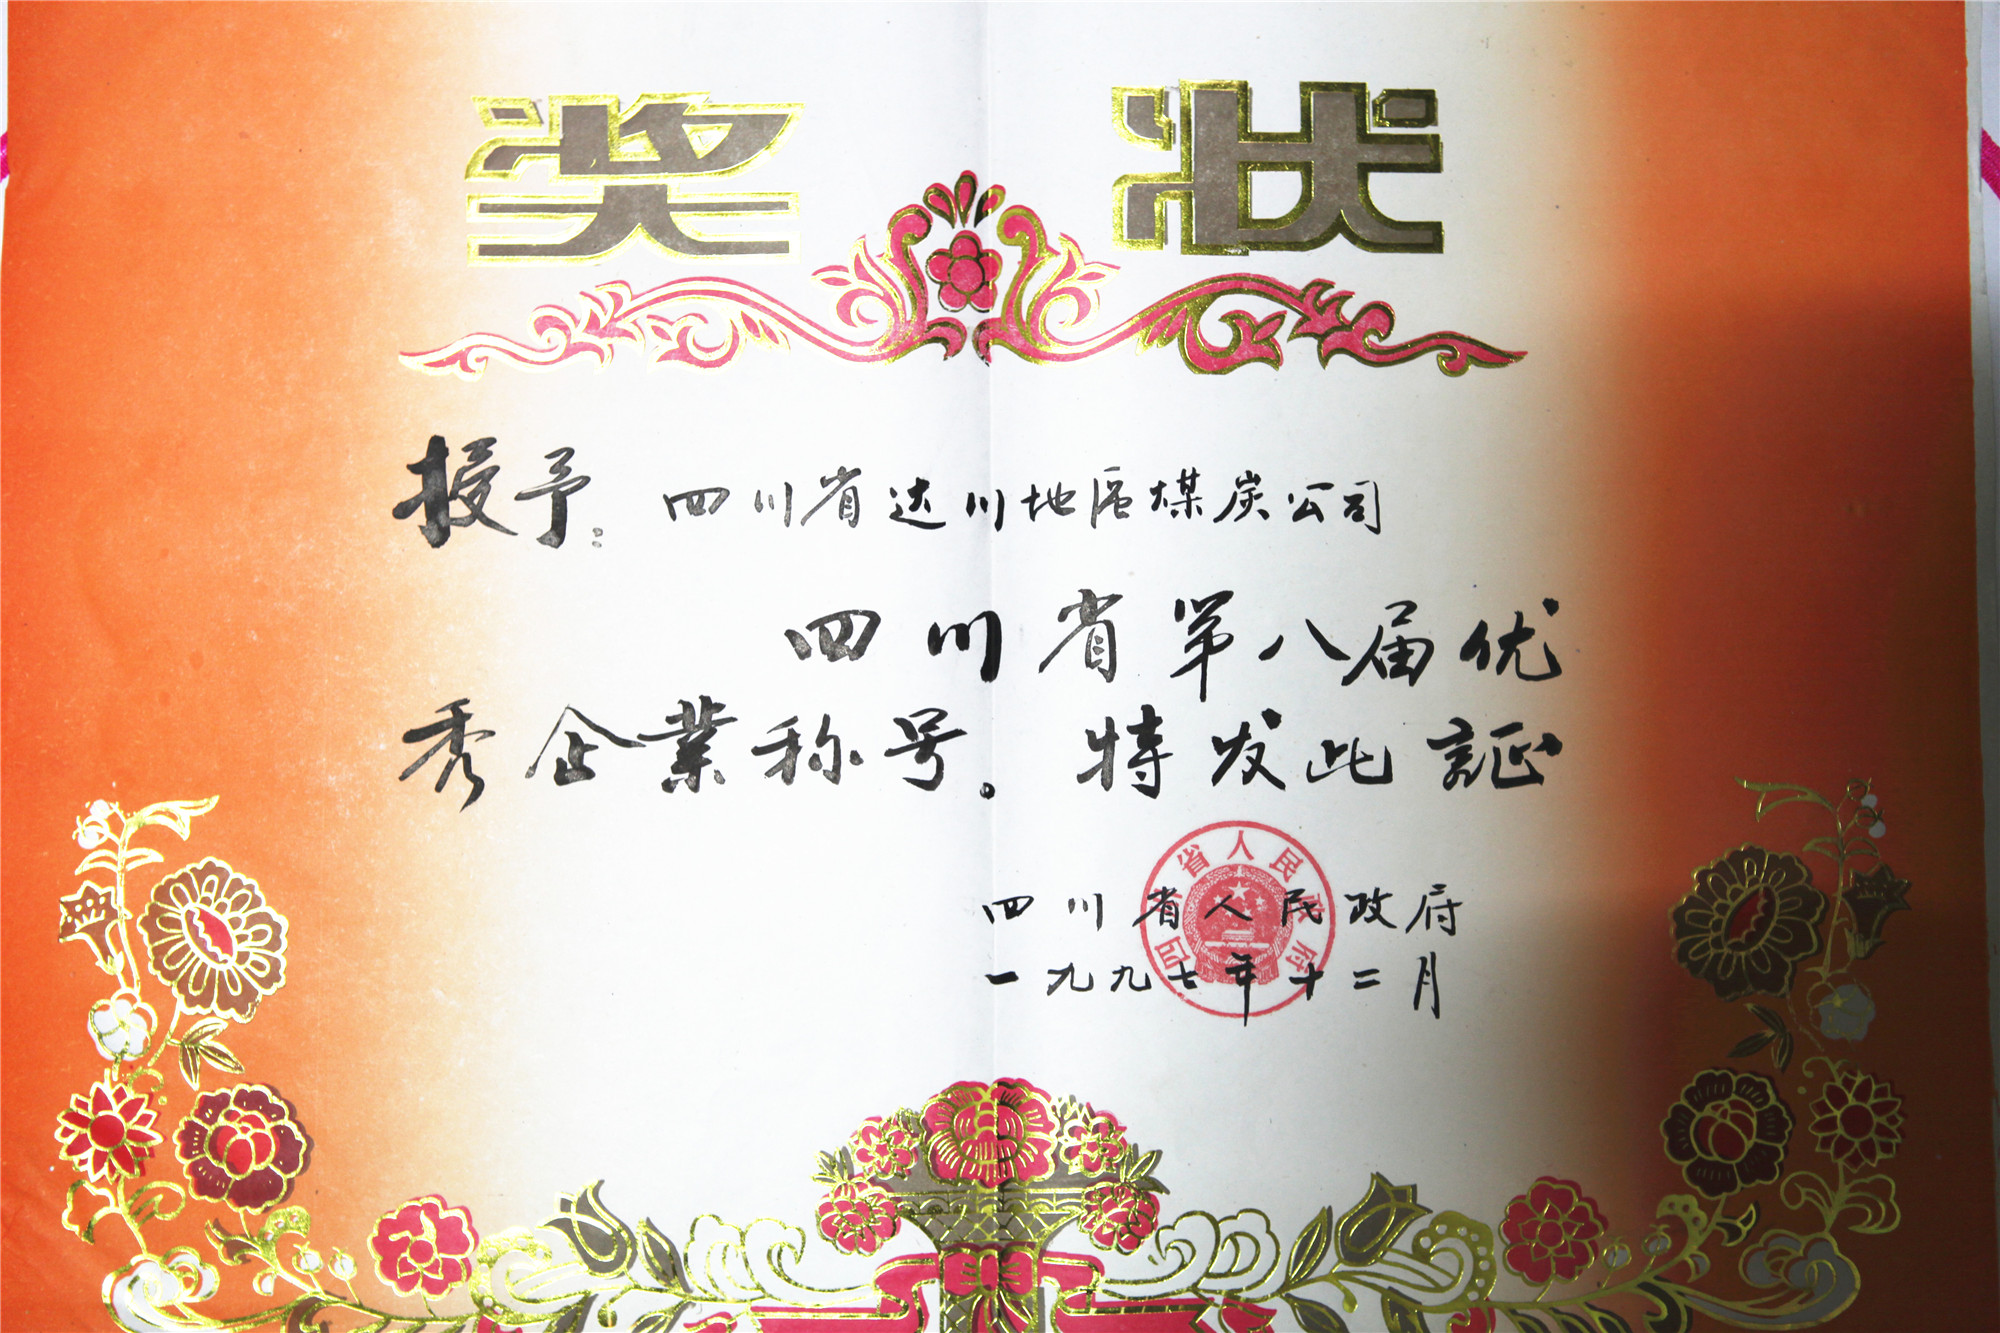 奖状
授予：四川省达川地区煤炭公司
四川省第八届优
秀企業称号。特发此証
四川省人民政府
一九九七年十二月
四川省人民政府